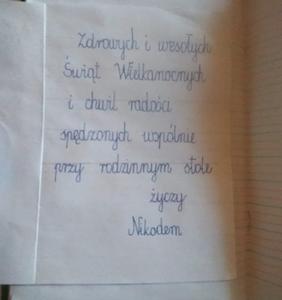 Zdrowych i wesołych
Świąt Wielkanocnych
i chwil radości
spędzonych wspólnie
przy rodzinnym stole
życzy
Nikodem